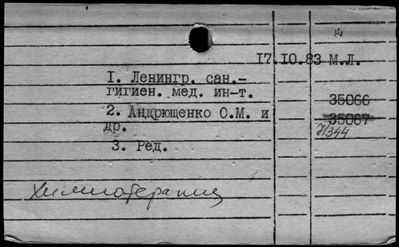 17.10.83 М.Л.
1. Ленингр. сан.-
гигиен. мед. ин-т.
35066
2. Андрющенко О.М. и
35067
др.
71344
3. Ред.
Химиотерапия